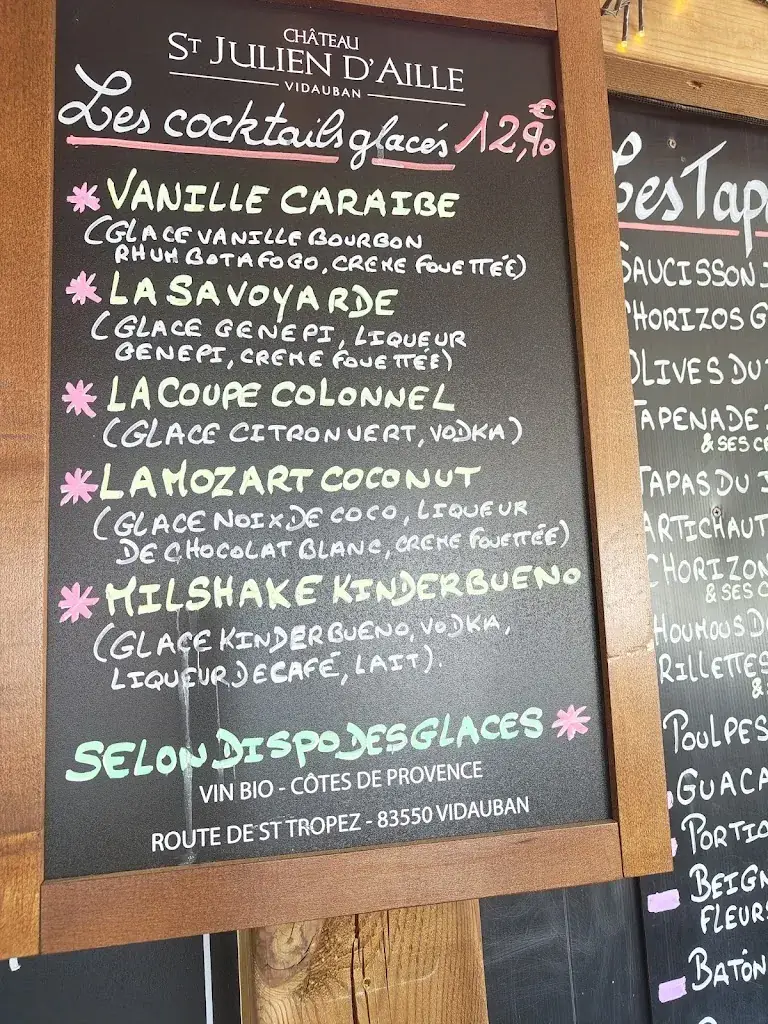 CHÂTEAU
ST JULIEN D'AILLE
VIDAUBAN
Les cocktails glacés 12,90€
VANILLE CARAIBE
(GLACE VANILLE BOURBON
RHUM BOTAFOGO, CREME FOUETTÉE)
LA SAVOYARDE
(GLACE GENEPI, LIQUEUR
GENEPI, CREME FOUETTÉE)
LA COUPE COLONNEL
(GLACE CITRON VERT, VODKA)
LA MOZART COCONUT
(GLACE NOIX DE COCO, LIQUEUR
DE CHOCOLAT BLANC, CREME FOUETTÉE)
MILSHAKE KINDERBUENO
(GLACE KINDERBUENO, VODKA,
LIQUEUR DE CAFÉ, LAIT).
SELON DISPO DES GLACES
VIN BIO - CÔTES DE PROVENCE
ROUTE DE ST TROPEZ - 83550 VIDAUBAN
Les Tap
SAUCISSON
CHORIZOS G
OLIVES DU
TAPENADE
& SES C
TAPAS DU
ARTICHAUT
CHORIZO
& SES
HOUMOUS D
RILLETTES
&
POULPES
GUACA
PORTIO
BEIGN
FLEURS
BATÔN